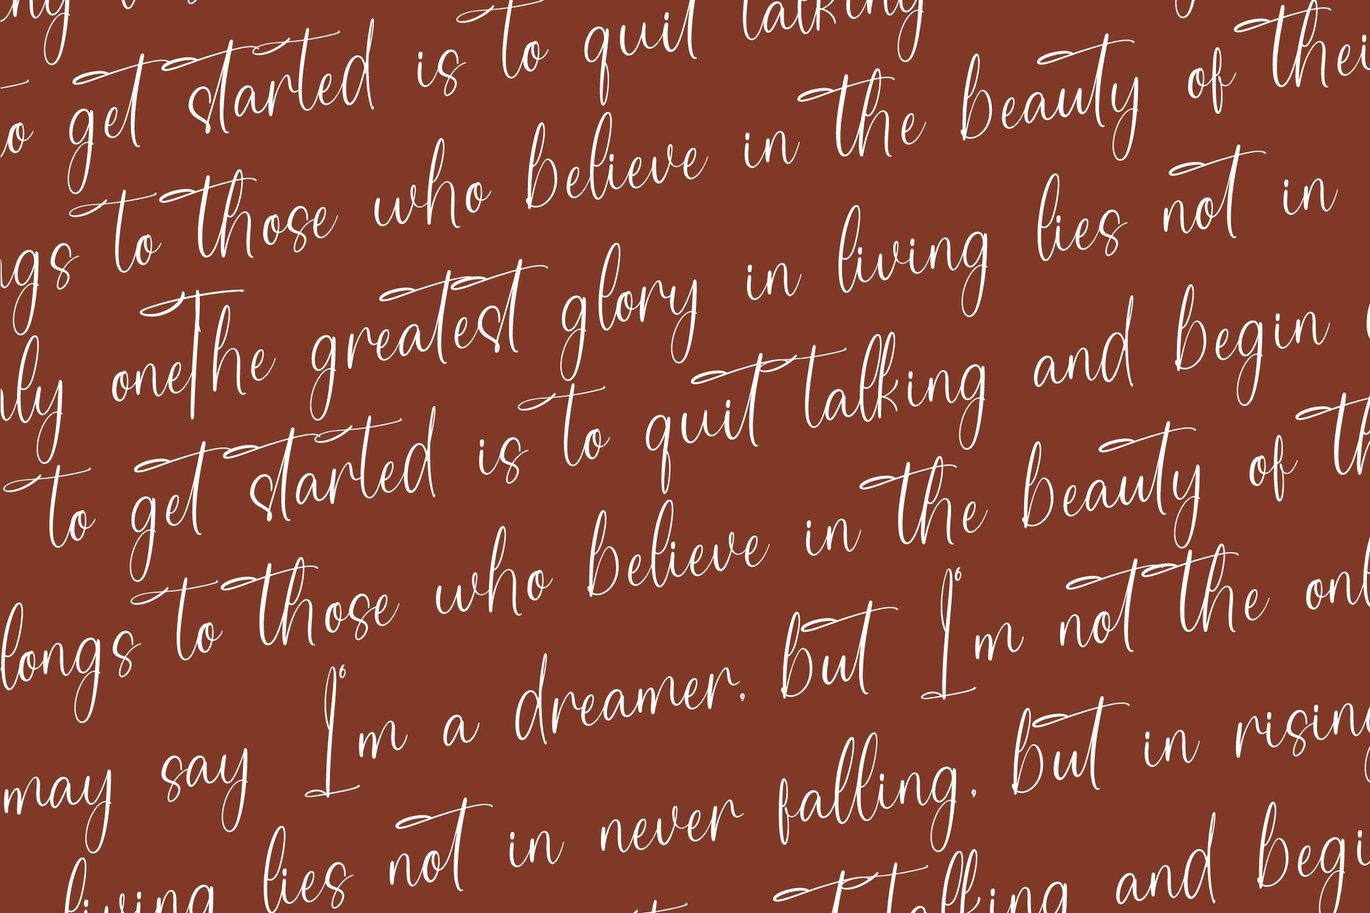 to get started is to quit talking
ngs to those who believe in the beauty of thei
nly oneThe greatest glory in living lies not in
to get started is to quit talking and begin
longs to those who believe in the beauty of th
may say I'm a dreamer, but I'm not the onl
living lies not in never falling, but in rising
talking and begi